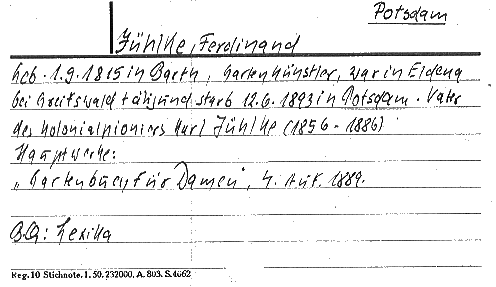 Potsdam
Jühlke, Ferdinand
Geb. 1.9.1815 in Barth, Gartenkünstler, war in Eldena
bei Greifswald tätig und starb 12.6.1893 in Potsdam. Vater
des Kolonialpioniers Karl Jühlke (1856-1886)
Hauptwerke:
"Gartenbuch für Damen", 4. Auf. 1889.
BQ: Lexika
Reg. 10 Stichnote. 1. 50. 232000. A. 803. S. 4662